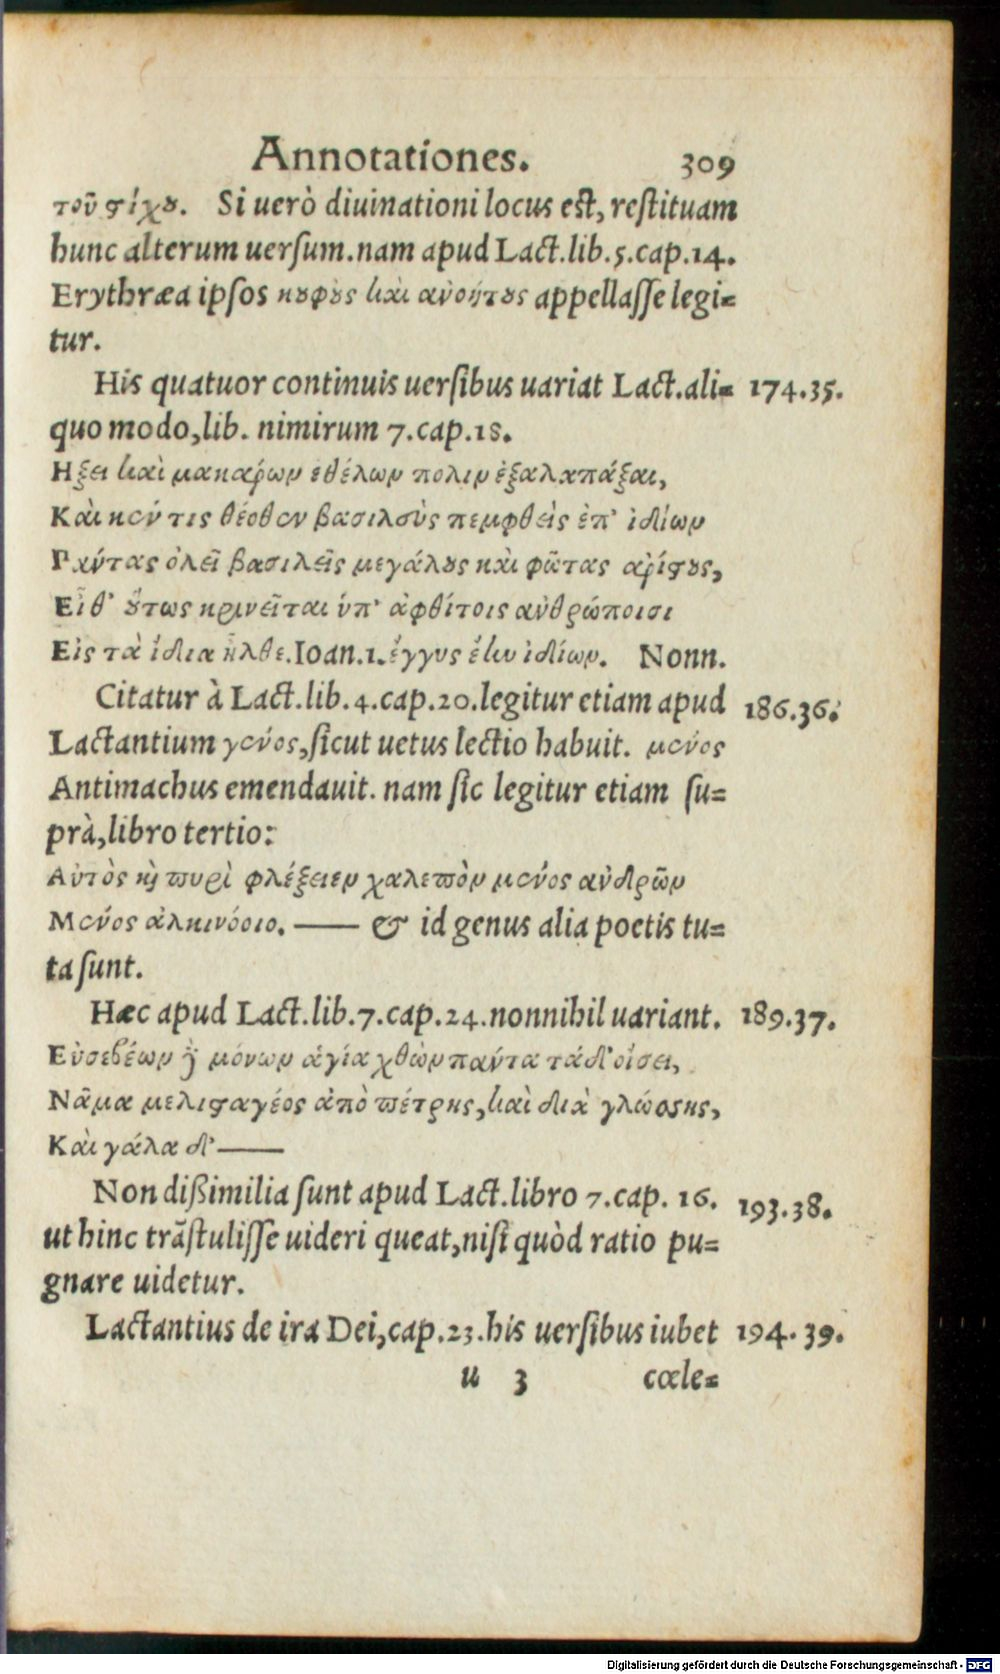 Annotationes. 309
τοῦ στίχου. Si uerò diuinationi locus est, restituam
hunc alterum uersum. nam apud Lact. lib. 5. cap. 14.
Erythræa ipsos κουφοὺς καὶ ανοήτους appellasse legi=
tur.
His quatuor continuis uersibus uariat Lact. ali= 174.35.
quo modo, lib. nimirum 7. cap. 18.
Ηξει καὶ μακαρ́ων εθέλων πολιν ἐξαλαπάξαι,
Καὶ κέν τις θέοθεν βασιλεὺς πεμφθεὶς ἐπ' ἰδίων
Πάντας ὀλεῖ βασιλεῖς μεγάλους καὶ φῶτας ἀρίστους,
Εἶθ' οὕτως κρινεῖται ὑπ' ἀφθίτοις ανθρώποισι
Εἰς τὰ ἴδια ἦλθε. Ioan. 1. ἔγγυς ἔην ἰδίων. Nonn.
Citatur à Lact. lib. 4. cap. 20. legitur etiam apud 186.36.
Lactantium γένος, sicut uetus lectio habuit. μένος
Antimachus emendauit. nam sic legitur etiam su=
prà, libro tertio:
Αὐτὸς καὶ πυρὶ φλέξειεν χαλεπὸν μένος ανδρῶν
Μένος ἀλκινόοιο. —— & id genus alia poetis tu=
ta sunt.
Hæc apud Lact. lib. 7. cap. 24. nonnihil uariant. 189.37.
Εὐσεβέων μόνων ἁγία χθὼν πάντα τάδ' οἴσει,
Νᾶμα μελισταγέος ἀπὸ πέτρης, καὶ διὰ γλώσσης,
Καὶ γάλα δ' ——
Non dißimilia sunt apud Lact. libro 7. cap. 16. 193.38.
ut hinc trãstulisse uideri queat, nisi quòd ratio pu=
gnare uidetur.
Lactantius de ira Dei, cap. 23. his uersibus iubet 194.39.
u 3 cœle=
Digitalisierung gefördert durch die Deutsche Forschungsgemeinschaft - DFG